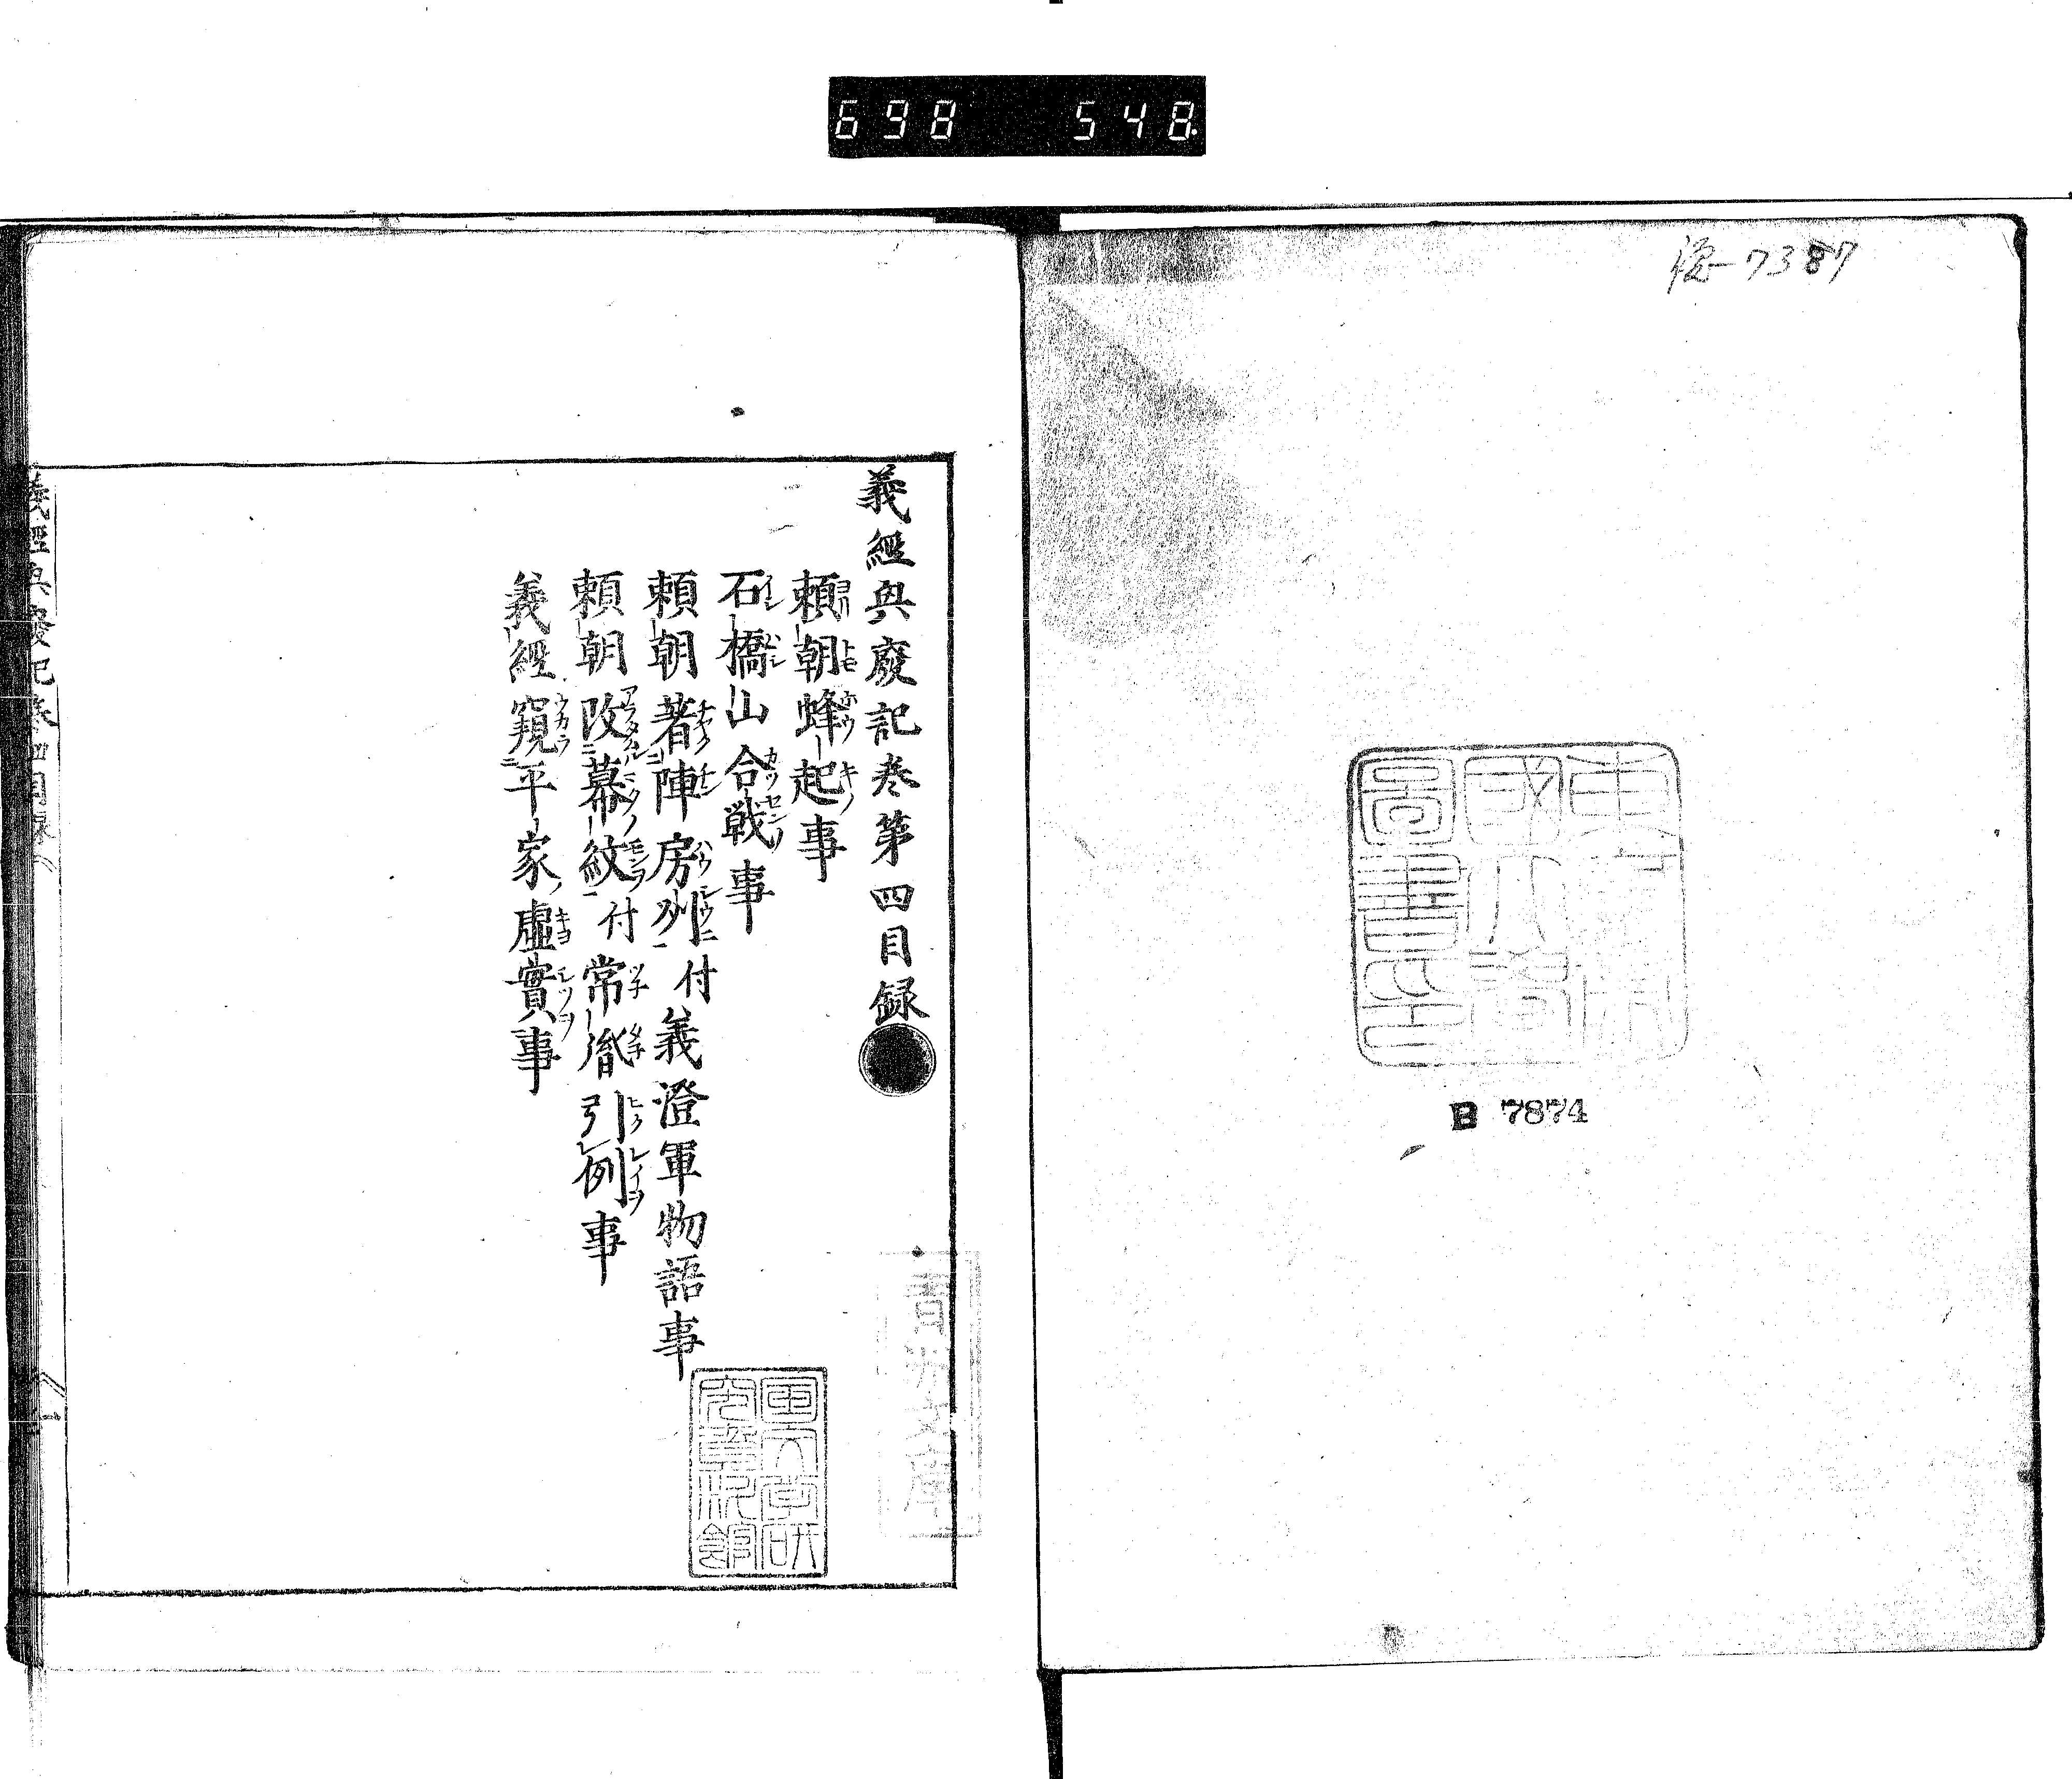 698 548
7387
東京
國大學
圖書印
B 7874
義經興廢記巻第四目録
頼朝蜂起事
石橋山合戦事
頼朝著陣房州付義澄軍物語事
頼朝改幕紋付常胤引例事
義經窺平家虚實事
青洲文庫
國文学研
究資料館
義經興廢記巻四目録